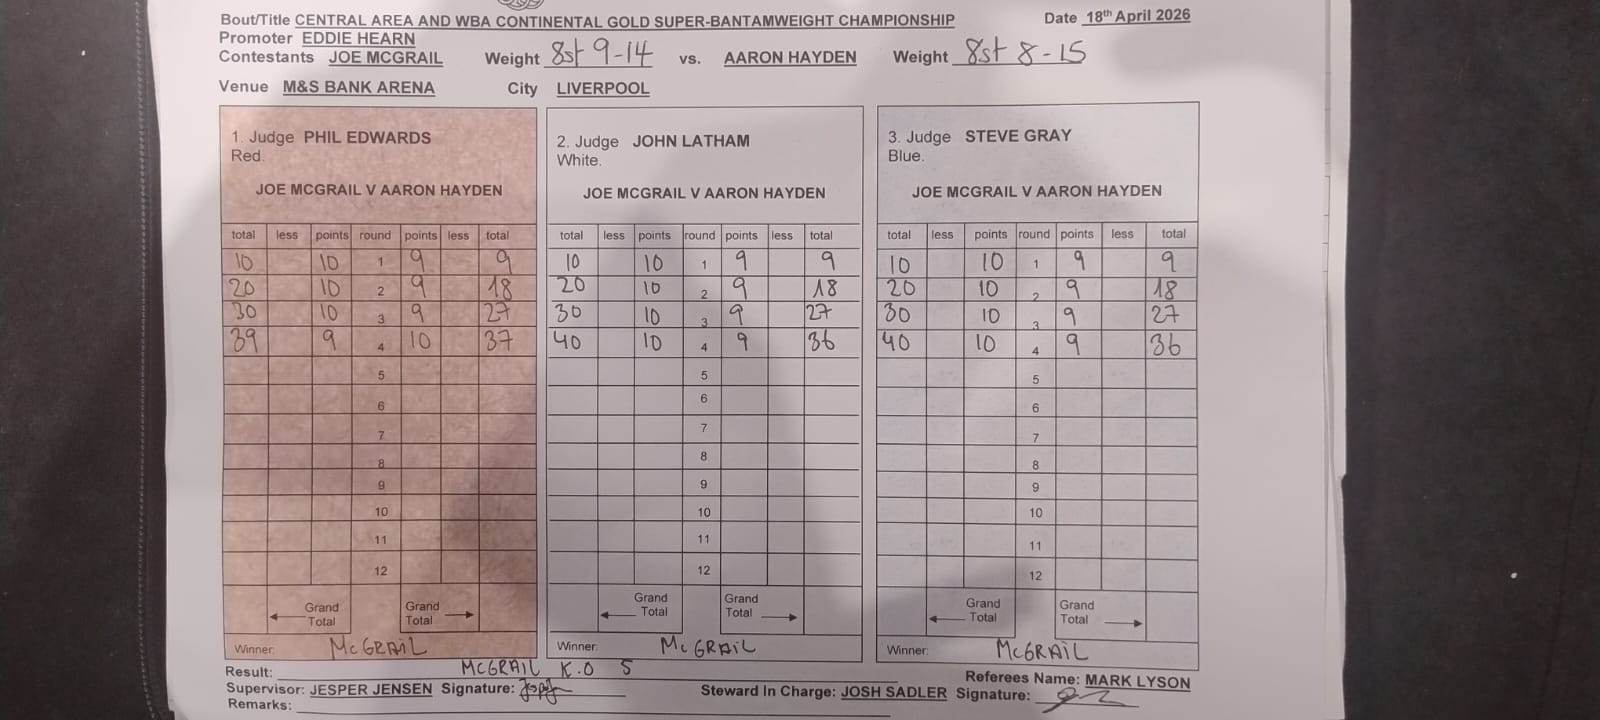 Bout/Title CENTRAL AREA AND WBA CONTINENTAL GOLD SUPER-BANTAMWEIGHT CHAMPIONSHIP Date 18th April 2026
Promoter EDDIE HEARN
Contestants JOE MCGRAIL Weight 8st 9-14 vs. AARON HAYDEN Weight 8st 8-15
Venue M&S BANK ARENA City LIVERPOOL
1. Judge PHIL EDWARDS
Red.
JOE MCGRAIL V AARON HAYDEN
total less points round points less total
10 10 1 9 9
20 10 2 9 18
30 10 3 9 27
39 9 4 10 37
5
6
7
8
9
10
11
12
Grand Total Grand Total
Winner: McGRAIL
2. Judge JOHN LATHAM
White.
JOE MCGRAIL V AARON HAYDEN
total less points round points less total
10 10 1 9 9
20 10 2 9 18
30 10 3 9 27
40 10 4 9 36
5
6
7
8
9
10
11
12
Grand Total Grand Total
Winner: McGRAIL
3. Judge STEVE GRAY
Blue.
JOE MCGRAIL V AARON HAYDEN
total less points round points less total
10 10 1 9 9
20 10 2 9 18
30 10 3 9 27
40 10 4 9 36
5
6
7
8
9
10
11
12
Grand Total Grand Total
Winner: McGRAIL
Result: McGRAIL K.O 5
Referees Name: MARK LYSON
Supervisor: JESPER JENSEN Signature: Steward In Charge: JOSH SADLER Signature:
Remarks: